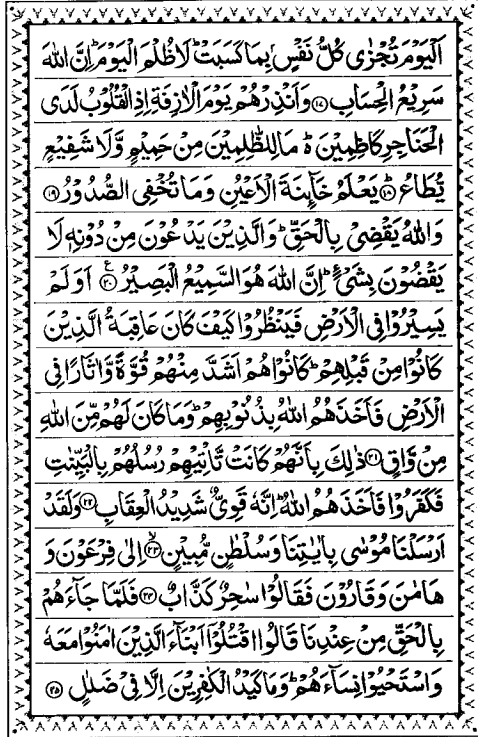 اَلْيَوْمَ تُجْزٰى كُلُّ نَفْسٍۭ بِمَا كَسَبَتْ ؕ لَا ظُلْمَ الْيَوْمَ ؕ اِنَّ اللّٰهَ
سَرِيْعُ الْحِسَابِ ﴿۱۷﴾ وَاَنْذِرْهُمْ يَوْمَ الْاٰزِفَةِ اِذِ الْقُلُوْبُ لَدَى
الْحَنَاجِرِ كَاظِمِيْنَ ؕ مَا لِلظّٰلِمِيْنَ مِنْ حَمِيْمٍ وَّلَا شَفِيْعٍ
يُّطَاعُ ؕ ﴿۱۸﴾ يَعْلَمُ خَآئِنَةَ الْاَعْيُنِ وَمَا تُخْفِى الصُّدُوْرُ ﴿۱۹﴾
وَاللّٰهُ يَقْضِىْ بِالْحَقِّ ؕ وَالَّذِيْنَ يَدْعُوْنَ مِنْ دُوْنِهٖ لَا
يَقْضُوْنَ بِشَىْءٍ ؕ اِنَّ اللّٰهَ هُوَ السَّمِيْعُ الْبَصِيْرُ ﴿۲۰﴾ ع اَوَلَمْ
يَسِيْرُوْا فِى الْاَرْضِ فَيَنْظُرُوْا كَيْفَ كَانَ عَاقِبَةُ الَّذِيْنَ
كَانُوْا مِنْ قَبْلِهِمْ ؕ كَانُوْا هُمْ اَشَدَّ مِنْهُمْ قُوَّةً وَّاٰثَارًا فِى
الْاَرْضِ فَاَخَذَهُمُ اللّٰهُ بِذُنُوْبِهِمْ ؕ وَمَا كَانَ لَهُمْ مِّنَ اللّٰهِ
مِنْ وَّاقٍ ﴿۲۱﴾ ذٰلِكَ بِاَنَّهُمْ كَانَتْ تَّاْتِيْهِمْ رُسُلُهُمْ بِالْبَيِّنٰتِ
فَكَفَرُوْا فَاَخَذَهُمُ اللّٰهُ ؕ اِنَّهٗ قَوِىٌّ شَدِيْدُ الْعِقَابِ ﴿۲۲﴾ وَلَقَدْ
اَرْسَلْنَا مُوْسٰى بِاٰيٰتِنَا وَسُلْطٰنٍ مُّبِيْنٍ ۙ ﴿۲۳﴾ اِلٰى فِرْعَوْنَ وَ
هَامٰنَ وَقَارُوْنَ فَقَالُوْا سٰحِرٌ كَذَّابٌ ﴿۲۴﴾ فَلَمَّا جَآءَهُمْ
بِالْحَقِّ مِنْ عِنْدِنَا قَالُوا اقْتُلُوْۤا اَبْنَآءَ الَّذِيْنَ اٰمَنُوْا مَعَهٗ
وَاسْتَحْيُوْا نِسَآءَهُمْ ؕ وَمَا كَيْدُ الْكٰفِرِيْنَ اِلَّا فِىْ ضَلٰلٍ ﴿۲۵﴾